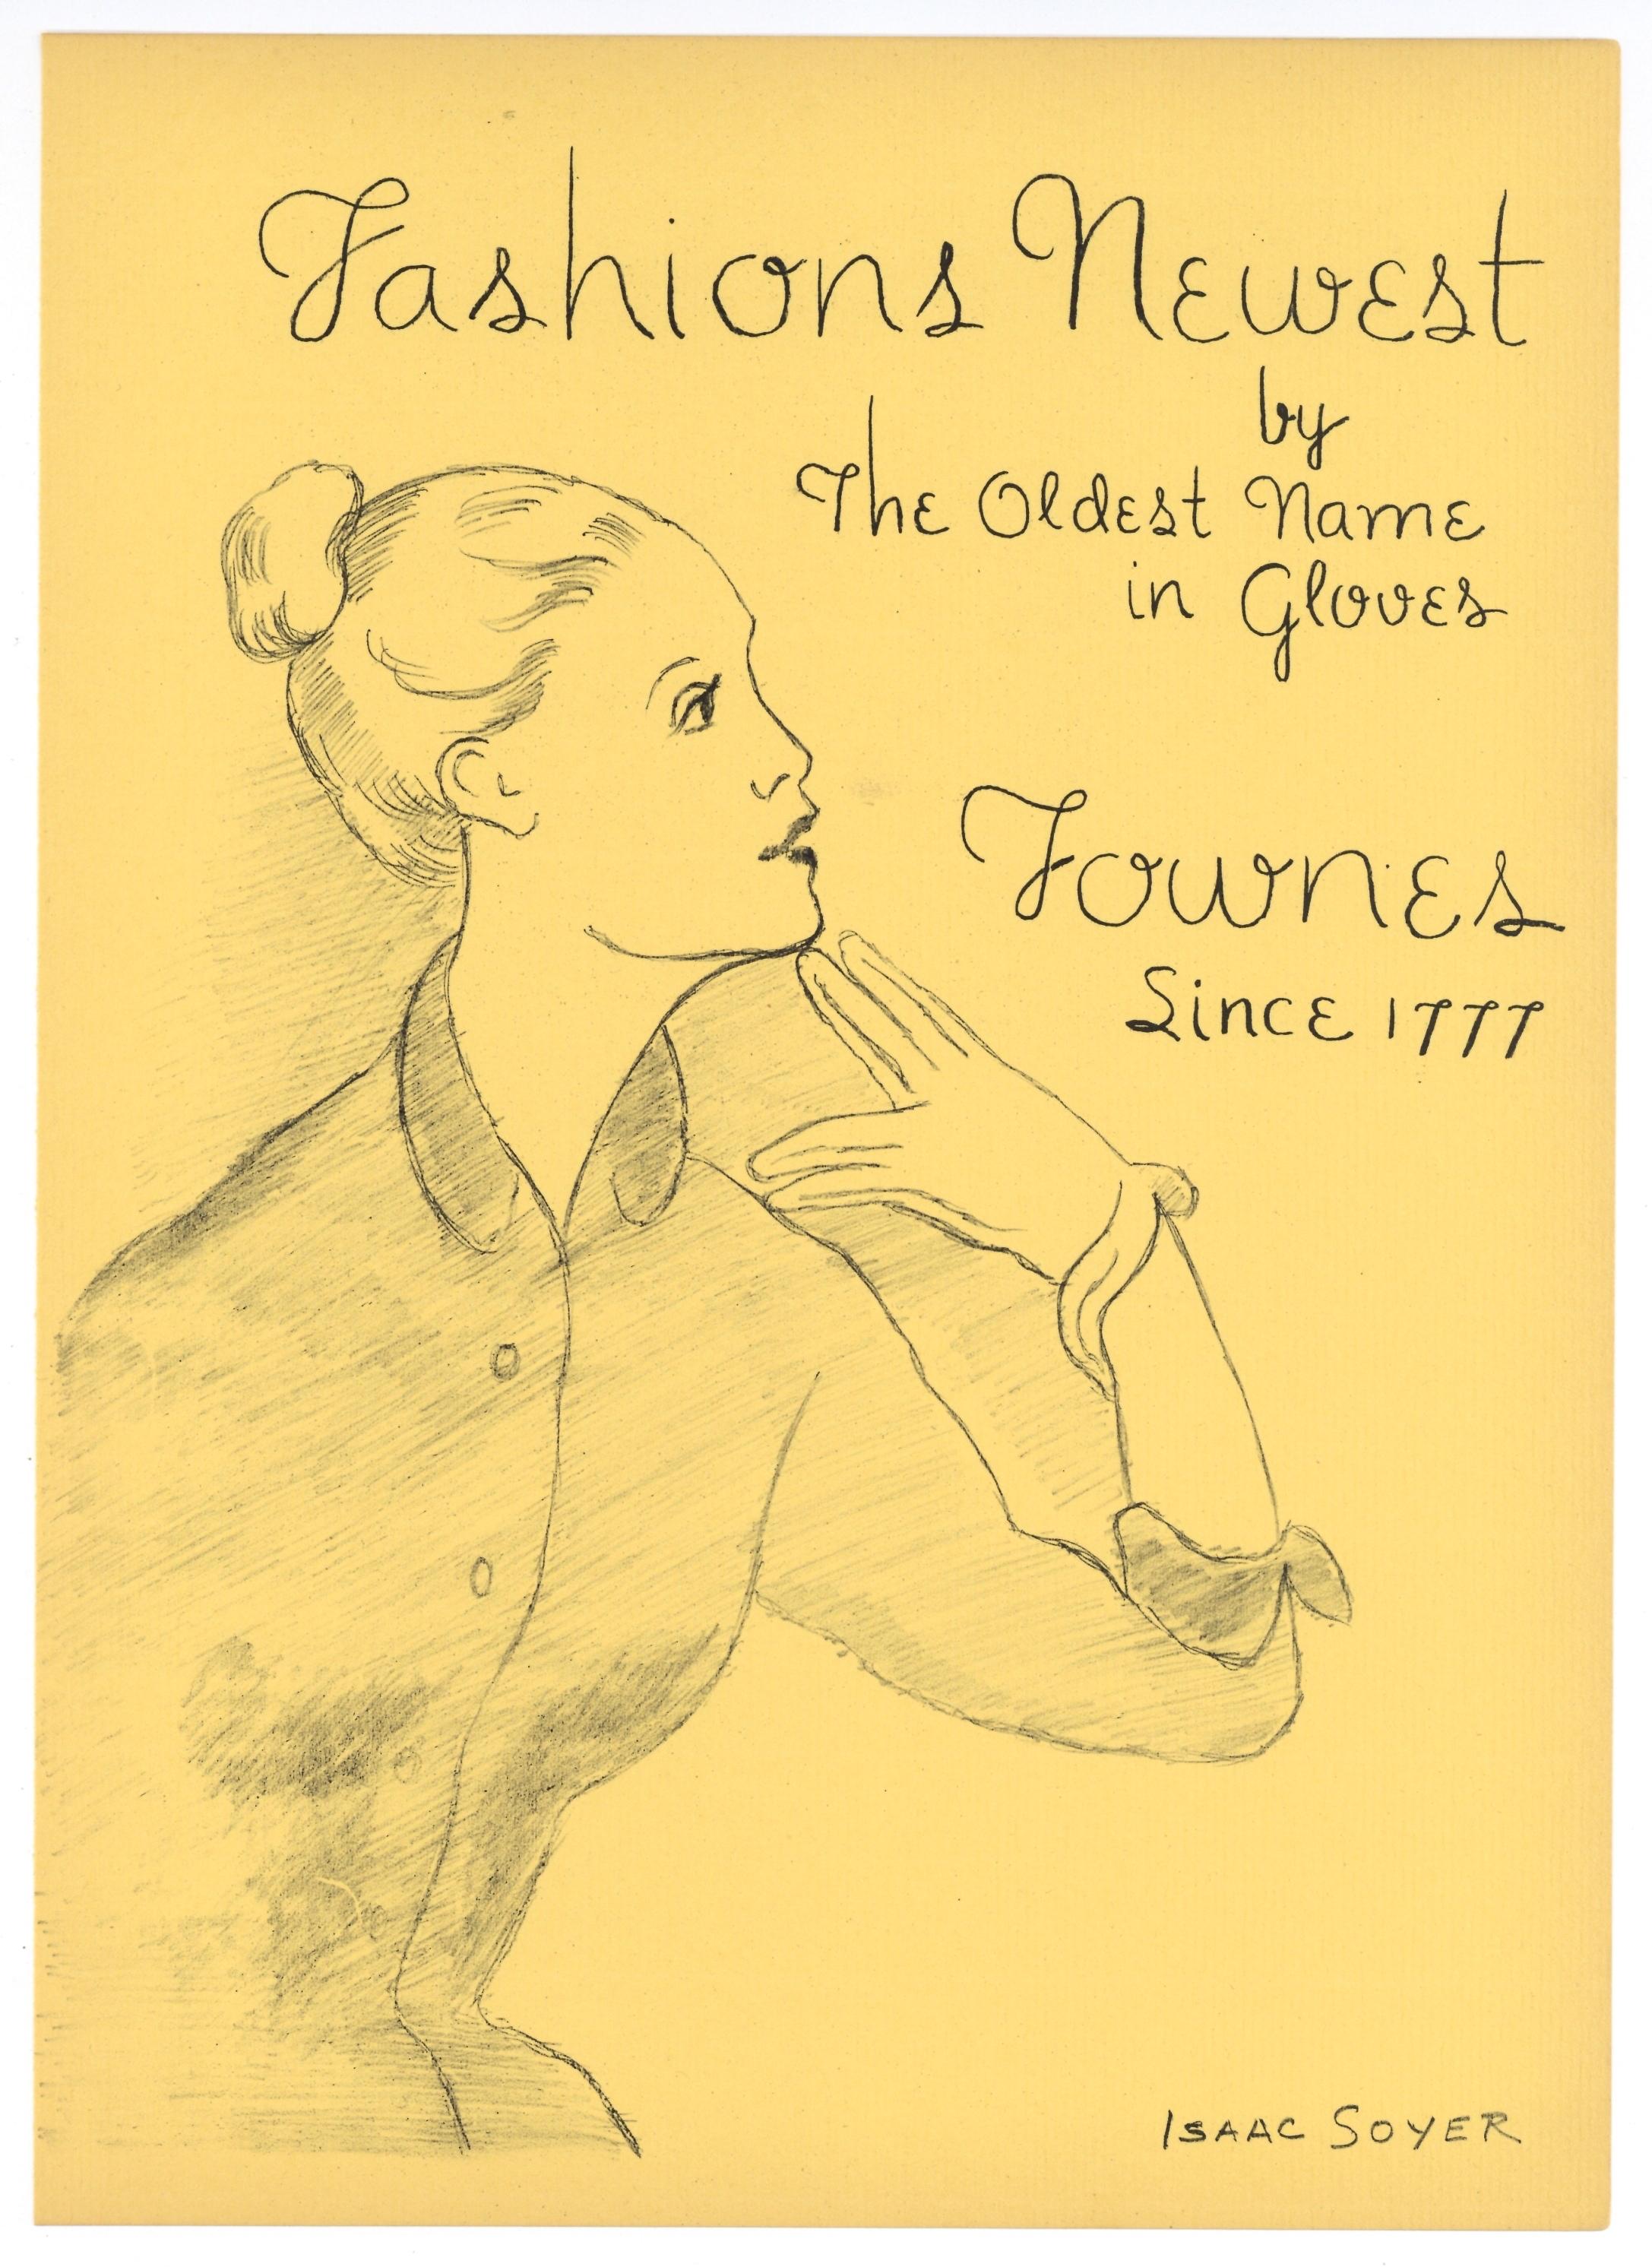 Fashions Newest
by
The Oldest Name
in Gloves
Fownes
Since 1777
ISAAC SOYER